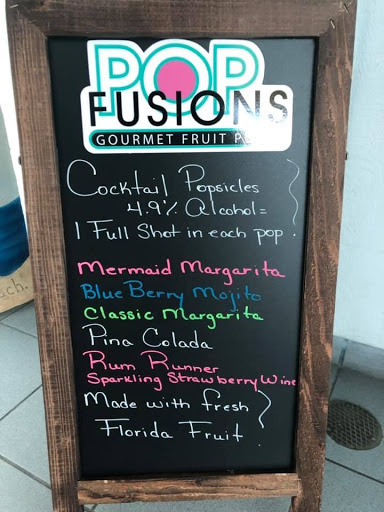 POP
FUSIONS
GOURMET FRUIT
Cocktail Popsicles
4.9% Alcohol =
1 Full Shot in each pop.
Mermaid Margarita
Blue Berry Mojito
Classic Margarita
Pina Colada
Rum Runner
Sparkling Strawberry Wine
Made with fresh
Florida Fruit.
ach.